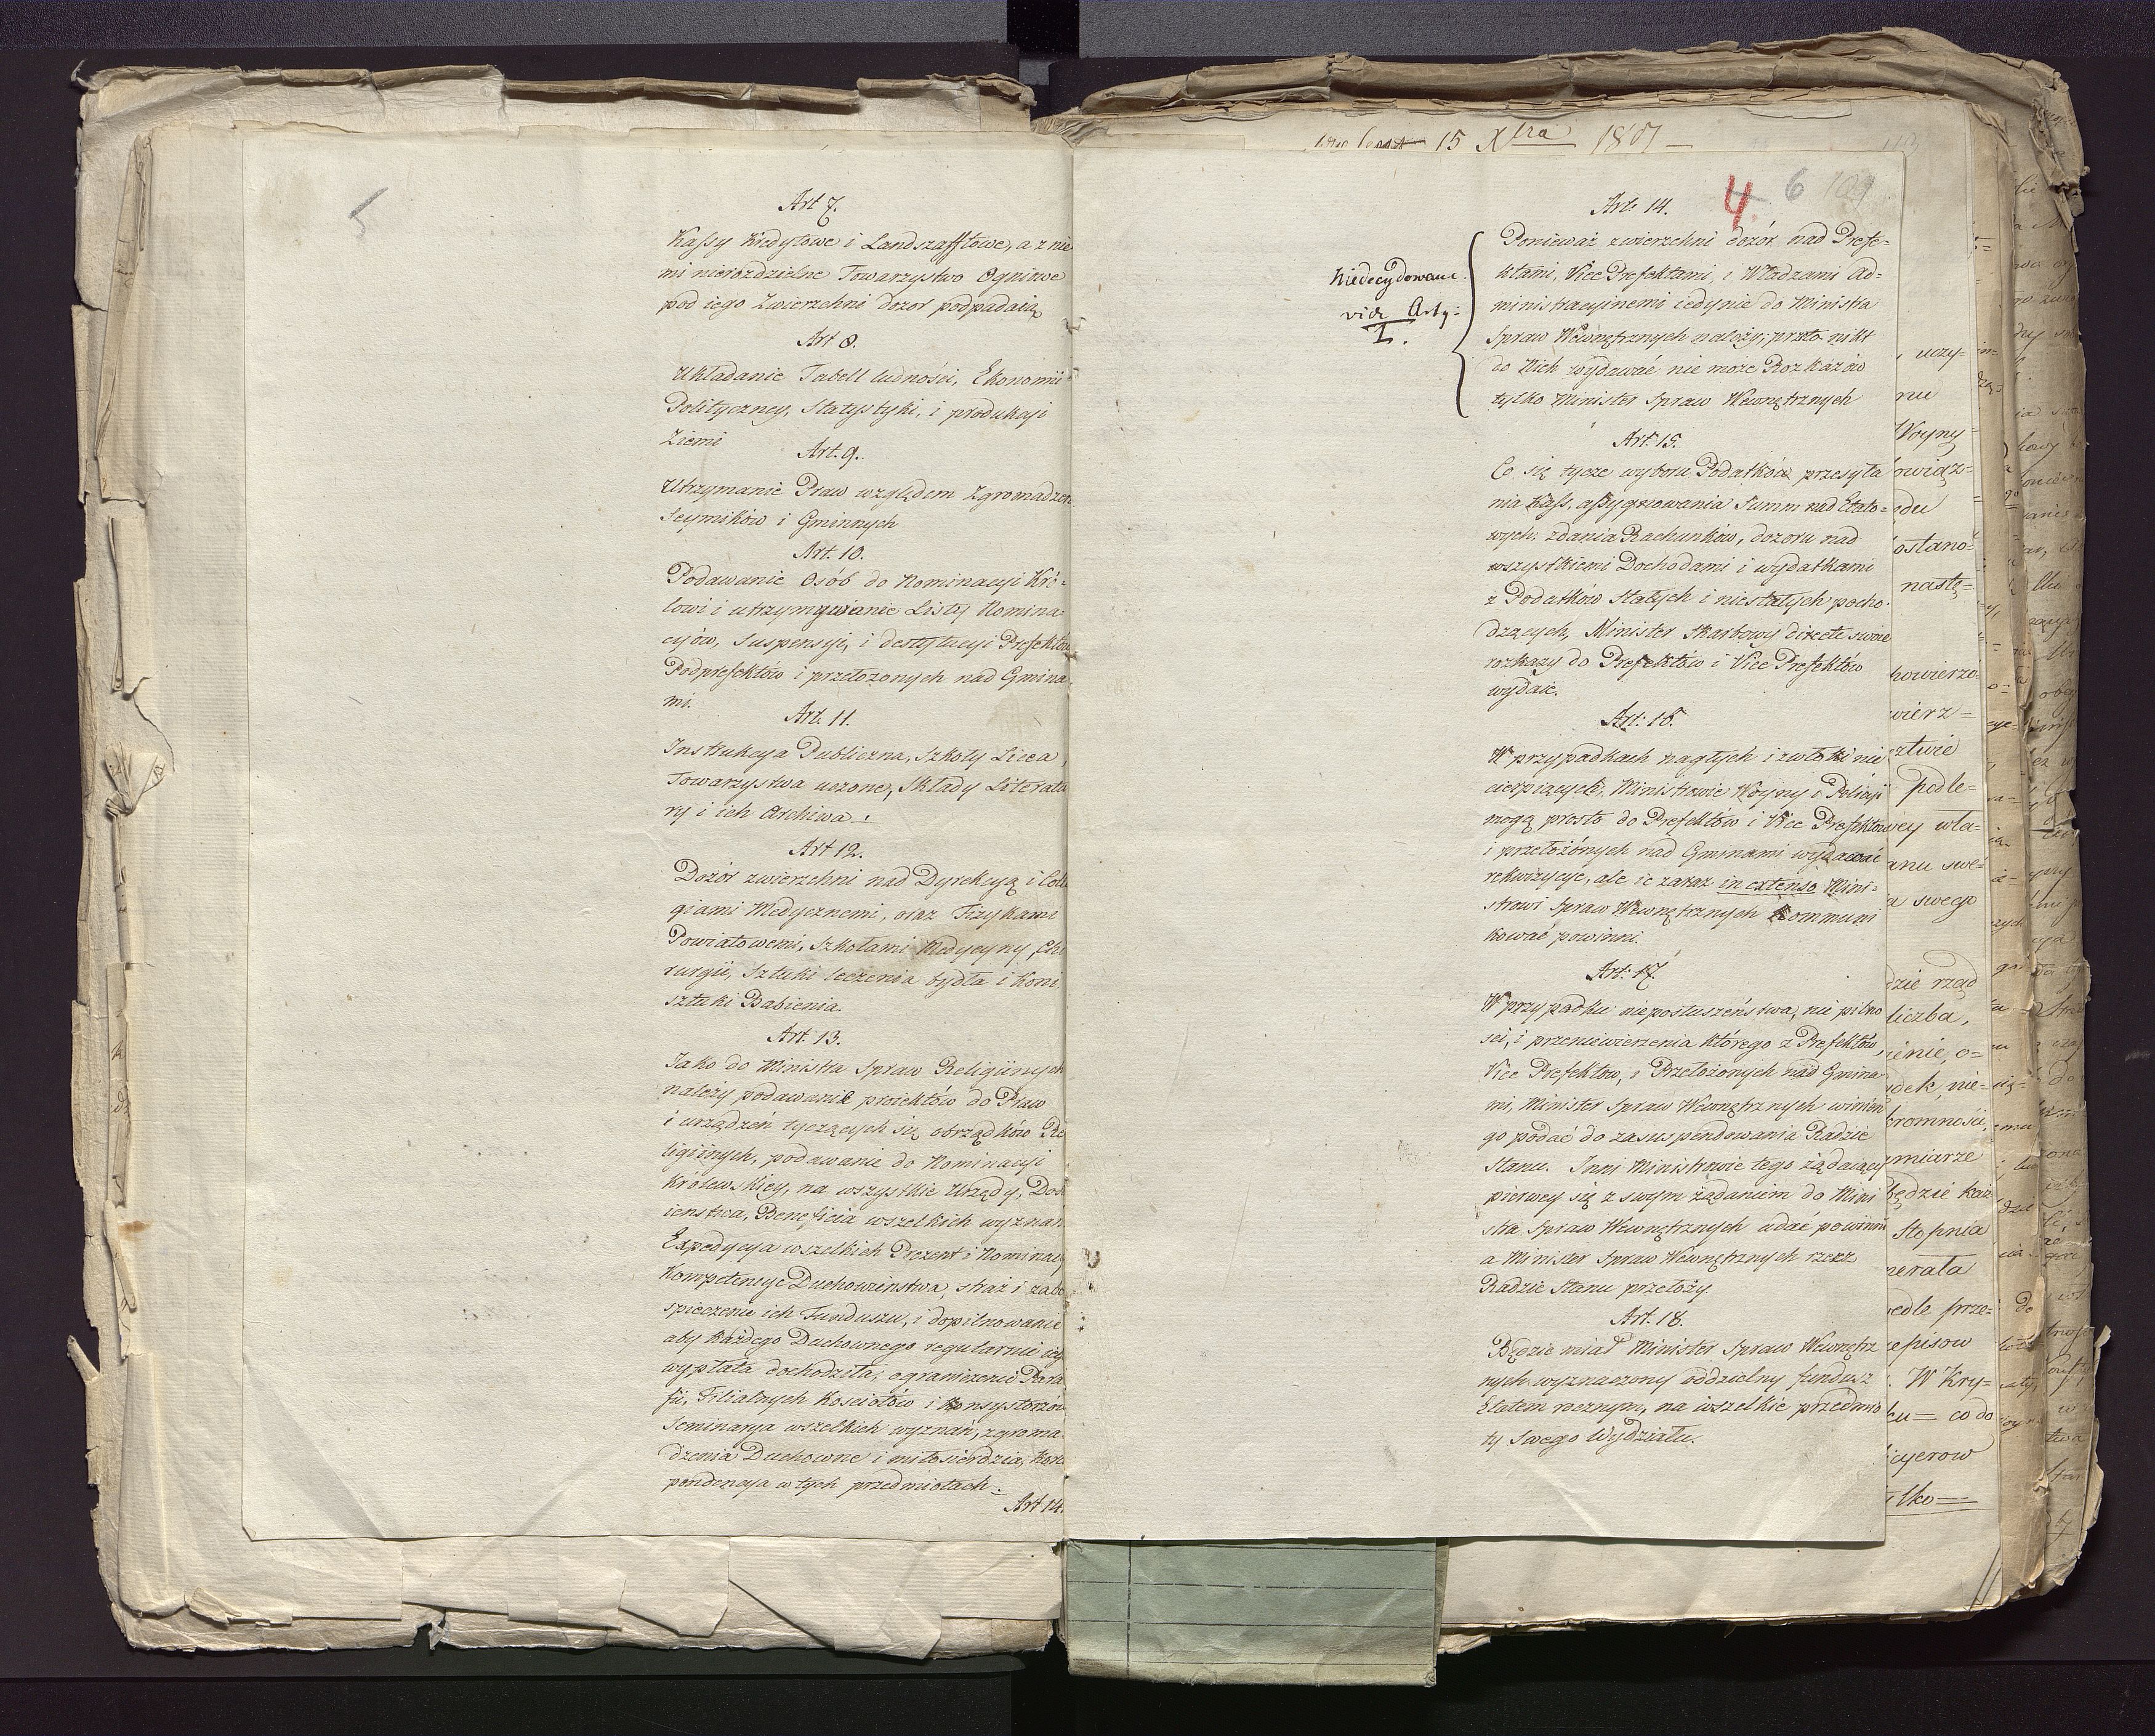 5
Art 7.
Kassy Kredytowe i Landszafftowe, a z nie
mi nierozdzielne Towarzystwo Ogniowe
pod iego Zwierzchni dozor podpadaią
Art 8.
Układanie Tabell ludności, Ekonomii
Polityczney, Statystyki, i produkcyi
Ziemi
Art. 9.
Utrzymanie Praw względem Zgromadzeń
Seymików i Gminnych
Art. 10.
Podawanie Osób do Nominacyi Kró-
lowi i utrzymywanie Listy Nomina-
cyów, Suspensyi, i destytucyi Prefektów
Podprefektów i przełożonych nad Gmina
mi.
Art. 11.
Instrukcya Publiczna, Szkoły Licea,
Towarzystwa uczone, Składy Literatu
ry i ich Archiwa.
Art 12.
Dozór zwierzchni nad Dyrekcyą i Coll
giami Medycznemi, oraz Fizykami
Powiatowemi, Szkołami Medycyny, Chi
rurgii, Sztuki leczenia bydła i Koni
sztuki Babienia.
Art. 13.
Jako do Ministra Spraw Religiinych
należy podawanie proiektów do Praw
i urządzeń tyczących się obrządków Re
ligiinych, podawanie do Nominacyi
Królewskiey, na wszystkie Urzędy, Dosto
ienstwa, Beneficia wszelkich wyznań
Expedycya wszelkich Prezent i Nominacy
Kompetencye Duchowieństwa, straż i zabe
spieczenie ich Funduszu, i dopilnowanie
aby każdego Duchownego regularnie iey
wypłata dochodziła, ograniczenie Para
fii, Filialnych Kosciołów i Konsystorzów
Seminarya wszelkich wyznań, zgroma
dzenia Duchowne i miłosierdzia, Kores
pondencya w tych przedmiotach.
Art 14.
15 Xbra 1807
4. 6 109
Art. 14.
Niedecydowane
vide Arty:
I.
Ponieważ zwierzchni dozór nad Prefe-
ktami, Vice Prefektami, i Władzami Ad-
ministracyinemi iedynie do Ministra
Spraw Wewnętrznych należy; przeto nikt
do Nich wydawać nie może Rozkazów
tylko Minister Spraw Wewnętrznych
Art. 15.
Co się tycze wyboru Podatków przesyła
nia Kass, assygnowania Summ nad Etato-
wych, zdania Rachunków, dozoru nad
wszystkiemi Dochodami i wydatkami
z Podatków stałych i niestałych pocho-
dzących, Minister Skarbowy directe swoie
rozkazy do Prefektów i Vice Prefektów
wydaie.
Art: 16.
W przypadkach nagłych i zwłoki nie
cierpiących, Ministrowie Woyny i Policyi
mogą prosto do Prefektów i Vice Prefektow
i przełożónych nad Gminami wydawać
rekwizycye, ale ie zaraz in extenso Mini-
strowi Spraw Wewnętrznych Kommuni
kować powinni.
Art: 17.
W przypadku nieposłuszeństwa, nie pilno
ści, i przeniewierzenia którego z Prefektów,
Vice Prefektow, i Przełożonych nad Gmina
mi, Minister Spraw Wewnętrznych winien
go podać do zasuspendowania Radzie
Stanu. Inni Ministrowie tego żądaiący
pierwey się z swym żądaniem do Mini
stra Spraw Wewnętrznych udać powinni
a Minister Spraw Wewnętrznych rzecz
Radzie Stanu przełoży.
Art. 18.
Będzie miał Minister Spraw Wewnętrz
nych wyznaczony oddzielny fundusz
Etatem rocznym, na wszelkie przedmio
ty Swego Wydziału.
uczy-
nu
Woyny
owiąz-
odu
ostano-
nastę-
howierzo-
wierz-
ztwie
podle-
wey wła-
anu swe-
a swego
dzie rząd
liczba,
ienie, o-
dek, nie-
kromności,
miarze
będzie każ
Stopnia
nerała
edle prze-
episow
W Kry-
ku= co do
icyerow
lko